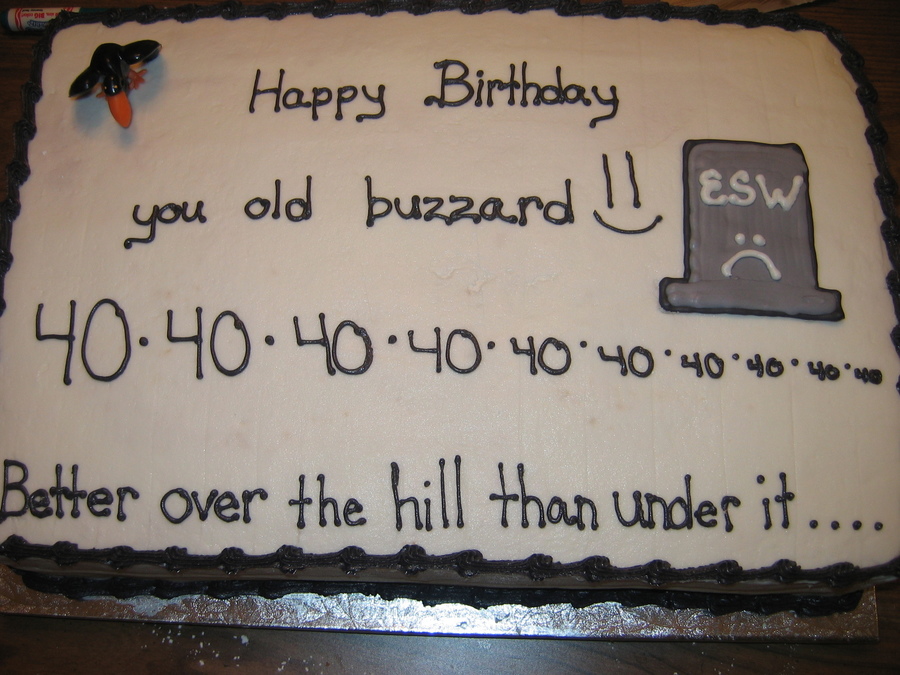 Happy Birthday
you old buzzard
ESW
40 · 40 · 40 · 40 · 40 · 40 · 40 · 40 · 40 · 40
Better over the hill than under it ....